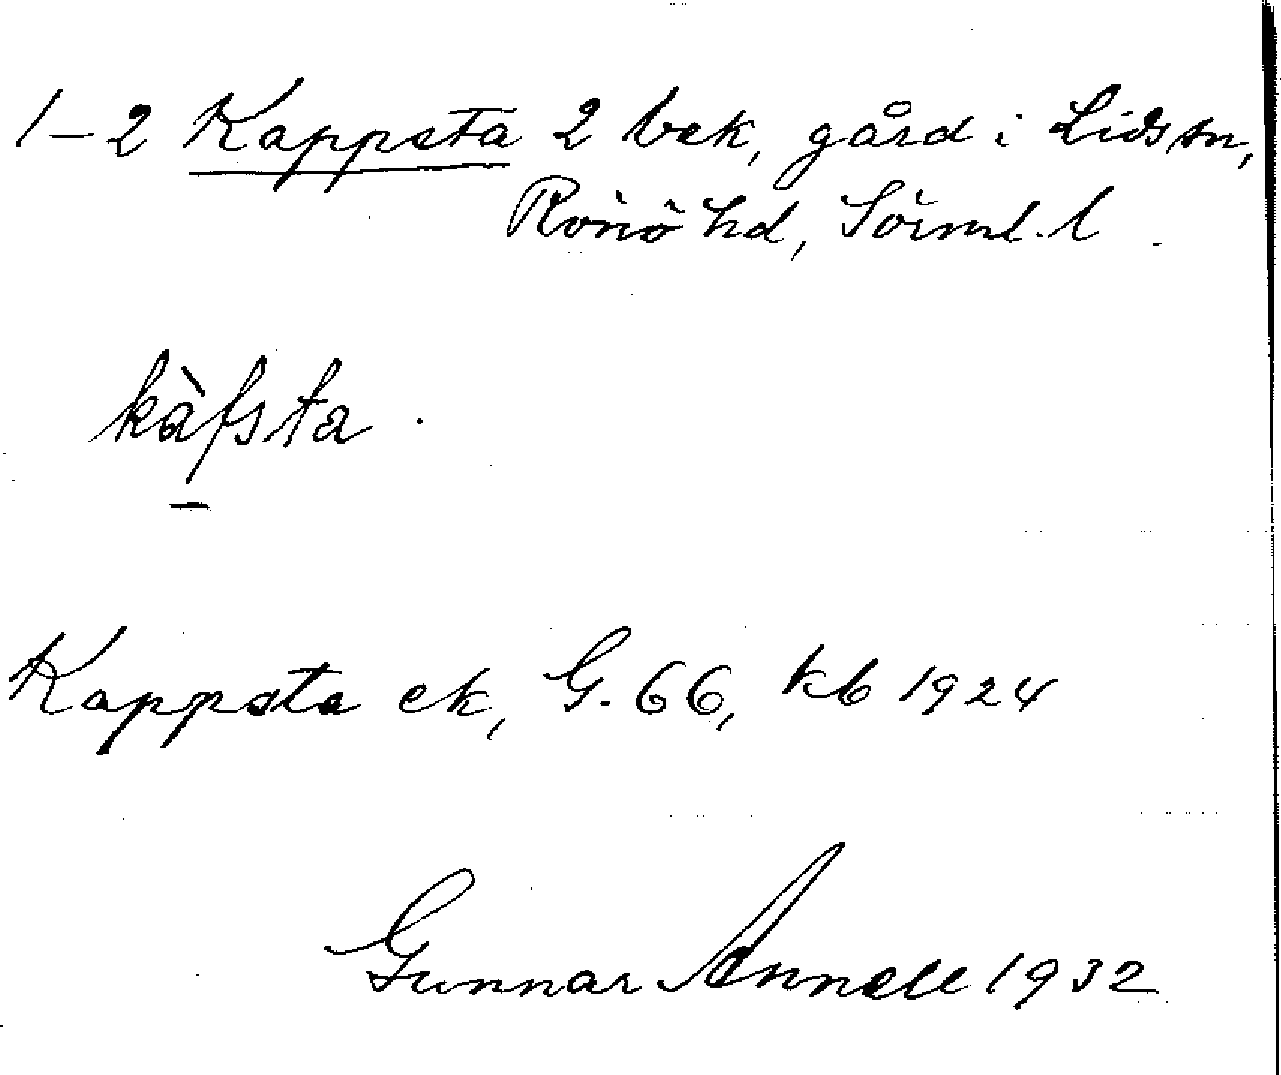 1-2 Kappsta 2 bek, gård i Lids sn,
Rönö hd, Sörml. l
kàfsta.
Kappsta ek, G. 66, kb 1924
Gunnar Annell 1932